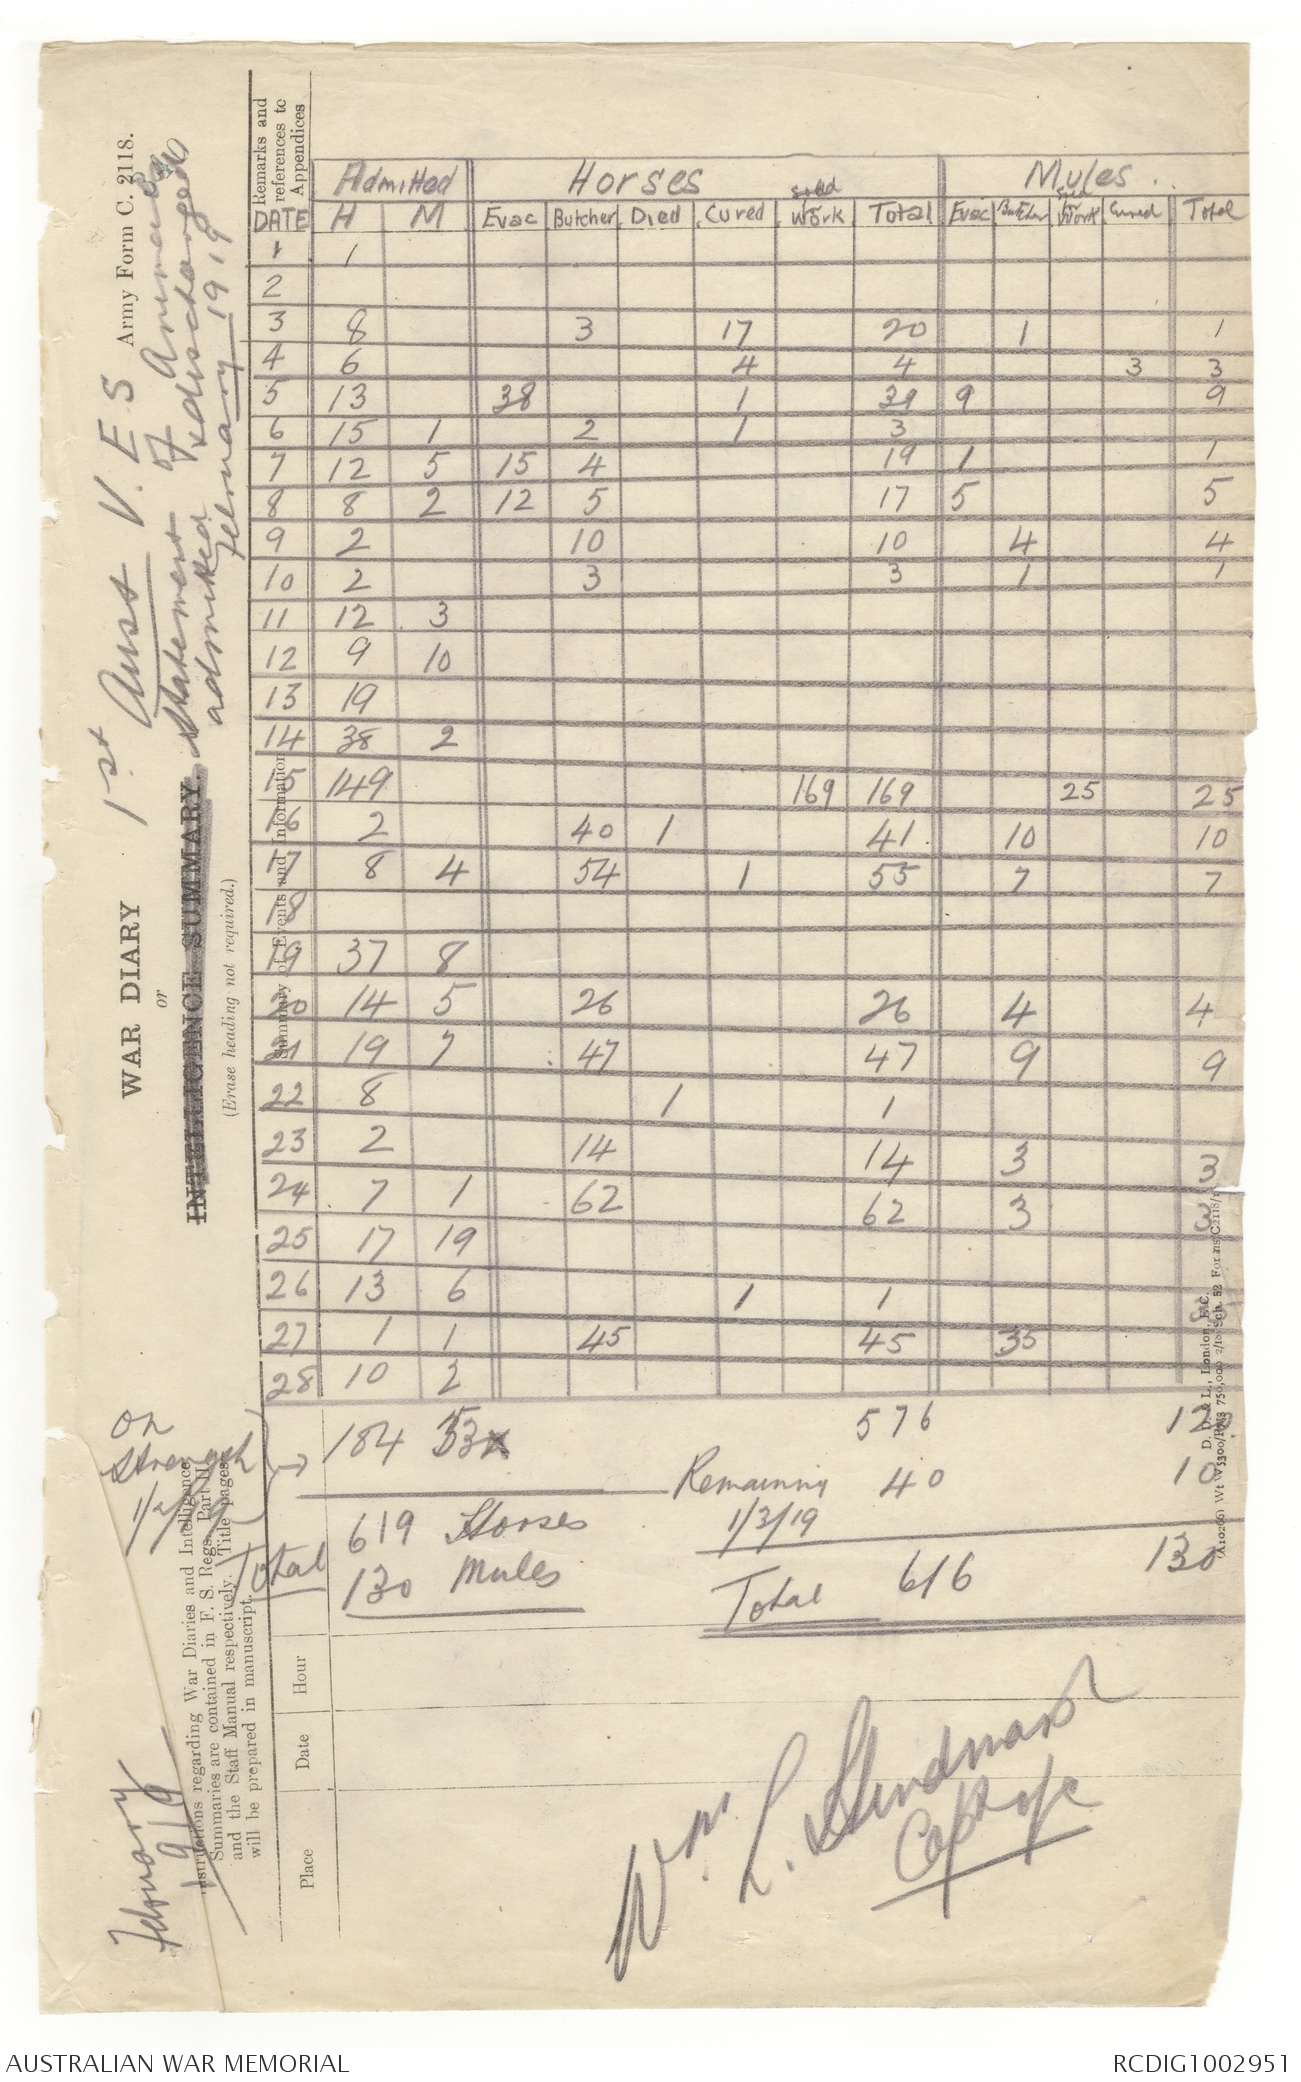 Army Form C. 2118.
1st Auss V. E. S
WAR DIARY
or
INTELLIGENCE SUMMARY.
(Erase heading not required.)
Statement of Animals
admitted & discharged
February 1919
Instructions regarding War Diaries and Intelligence
Summaries are contained in F. S. Regs., Part II.
and the Staff Manual respectively. Title pages
will be prepared in manuscript.
February
1919
Place
Date
Hour
Summary of Events and Information
Remarks and
references to
Appendices
Admitted Horses Mules
DATE H M Evac Butcher Died Cured sold Work Total Evac Butcher Work Cured Total
1 1
2
3 8 3 17 20 1 1
4 6 4 4 3 3
5 13 38 1 39 9 9
6 15 1 2 1 3
7 12 5 15 4 19 1 1
8 8 2 12 5 17 5 5
9 2 10 10 4 4
10 2 3 3 1 1
11 12 3
12 9 10
13 19
14 38 2
15 149 169 169 25 25
16 2 40 1 41 10 10
17 8 4 54 1 55 7 7
18
19 37 8
20 14 5 26 26 4 4
21 19 7 47 47 9 9
22 8 1 1
23 2 14 14 3 3
24 7 1 62 62 3 3
25 17 19
26 13 6 1 1
27 1 1 45 45 35
28 10 2
On
Strength
1/2/19
184
576
Remaining 40 10
1/3/19
Total
619 Horses
130 Mules
Total 616 130
Wm. L. Hindmarsh
Capt
D. D. & L., London, E.C.
AUSTRALIAN WAR MEMORIAL
RCDIG1002951